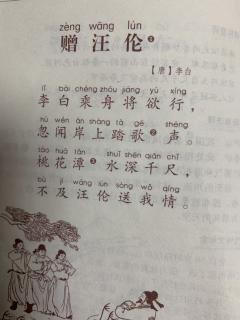 zèng wāng lún
赠汪伦❶
【唐】李白
lǐ bái chéng zhōu jiāng yù xíng
李白乘舟将欲行，
hū wén àn shàng tà gē shēng
忽闻岸上踏歌❷声。
táo huā tán shuǐ shēn qiān chǐ
桃花潭❸水深千尺，
bù jí wāng lún sòng wǒ qíng
不及汪伦送我情。